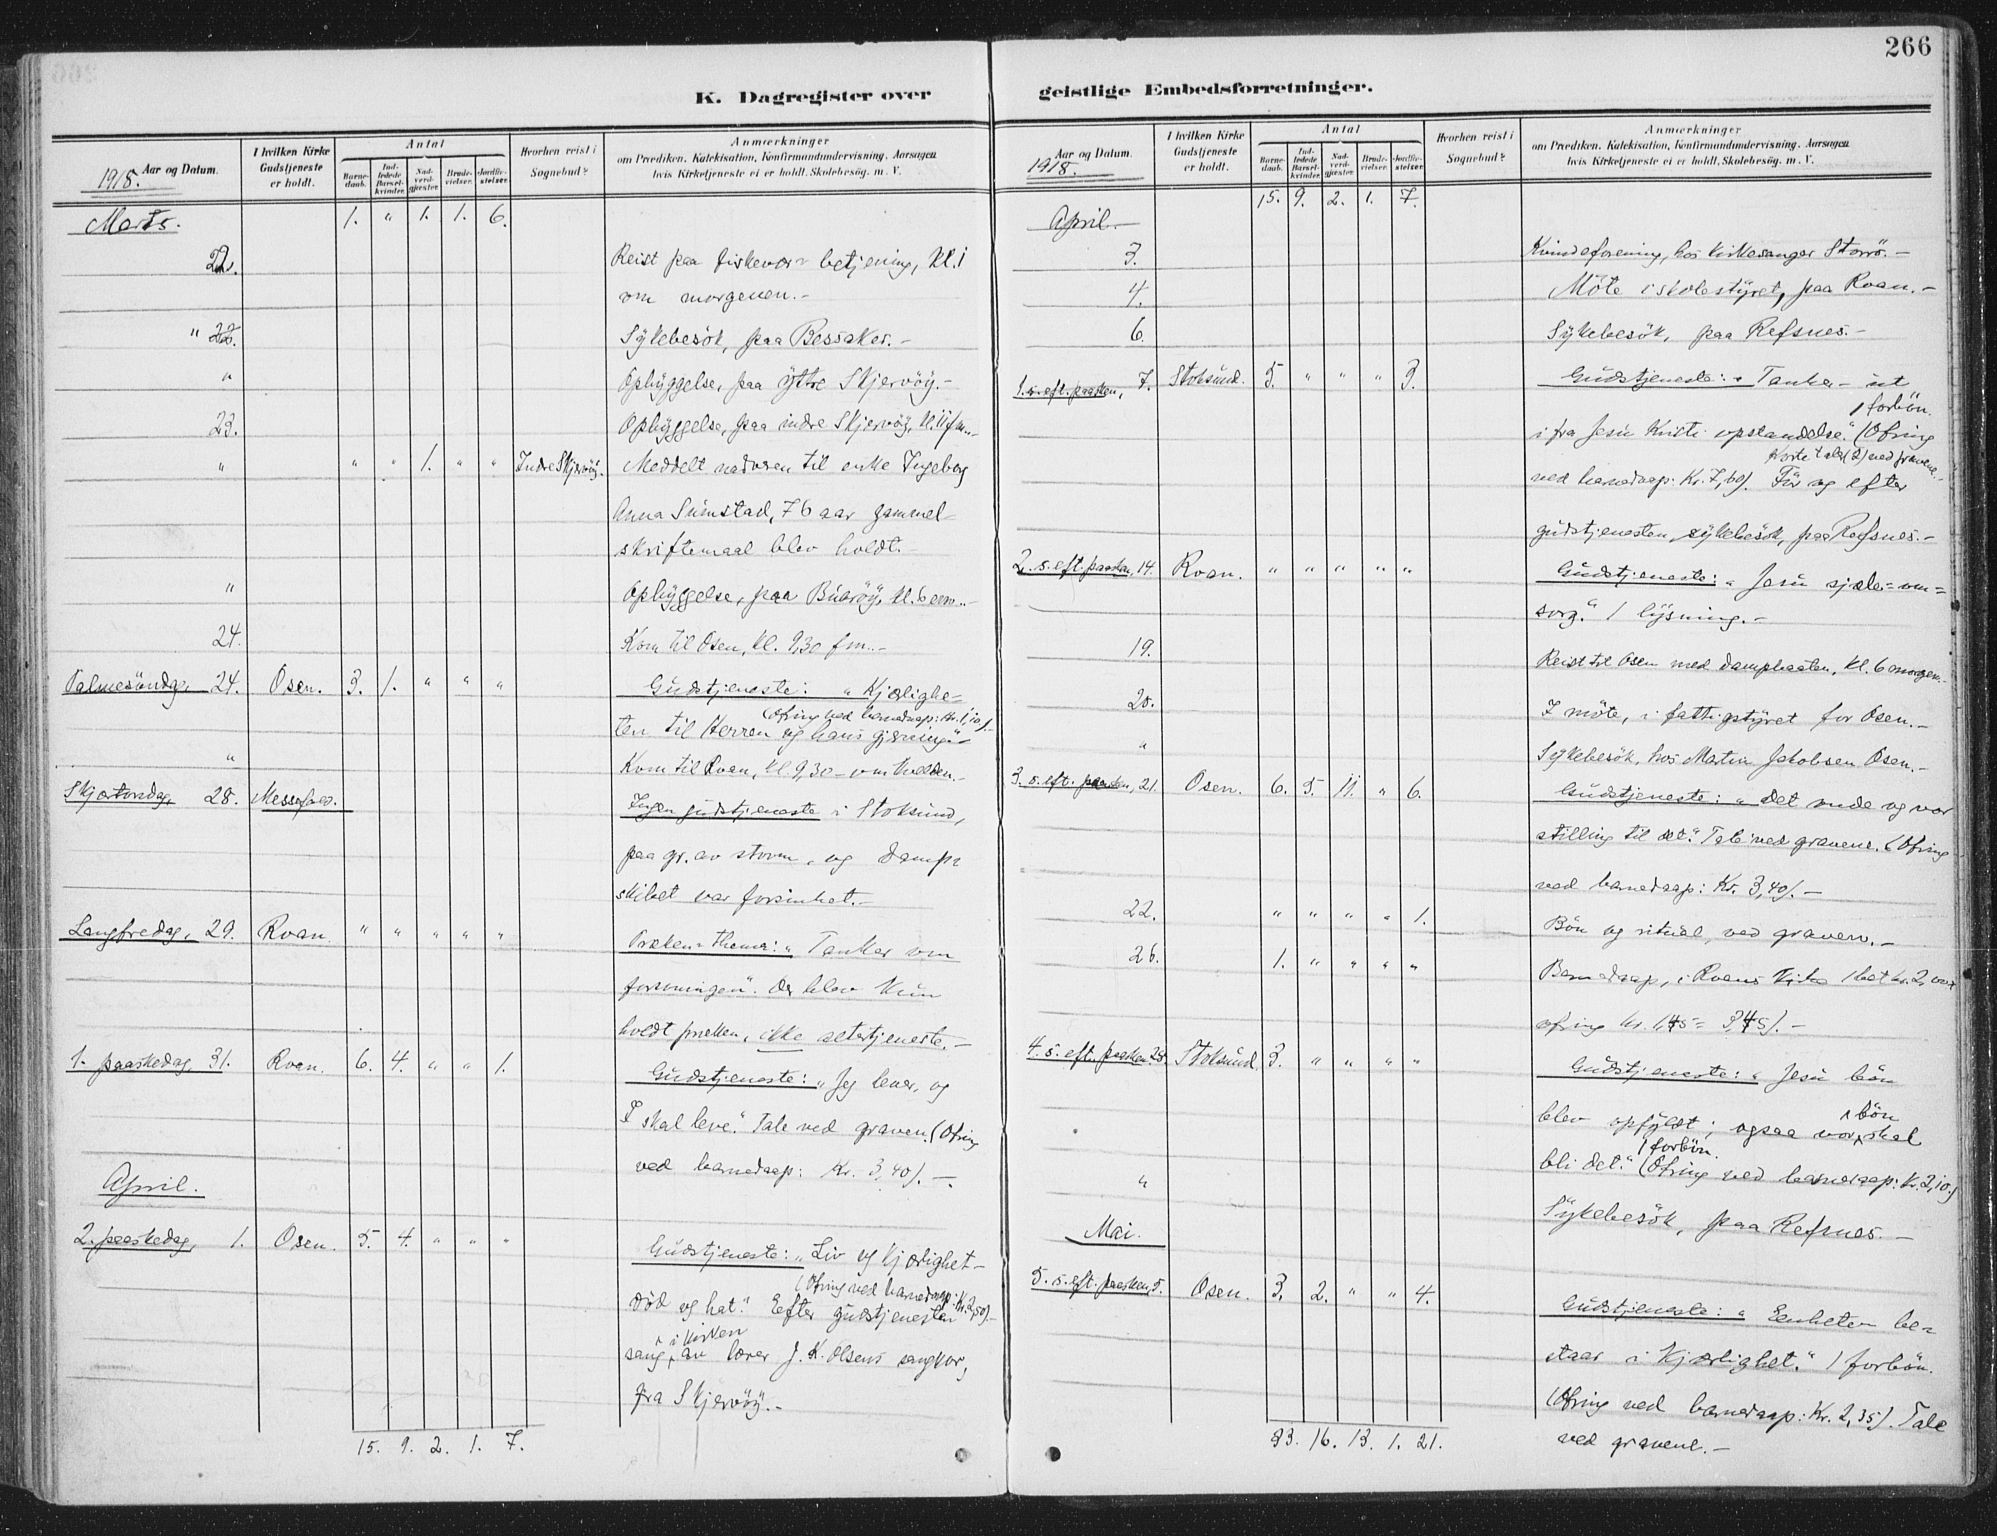 266
K. Dagregister over
geistlige Embedsforretninger.
1918. Aar og Datum.
I hvilken Kirke Gudstjeneste er holdt.
Antal
Barnedaab.
Indledede Barselkvinder.
Nadverdgjester.
Brudevielser.
Jordfæstelser.
Hvorhen reist i Sognebud?
Anmærkninger
om Prædiken, Katekisation, Konfirmandundervisning. Aarsagen
hvis Kirketjeneste ei er holdt. Skolebesøg. m. V.
Marts. 1. " 1. 1. 6.
22. Reist paa fiskevær-betjening, kl. 1
om morgenen.-
" 22. Sykebesök, paa Bessaker.-
" Opbyggelse, paa ytre Skjervöy.-
23. Opbyggelse, paa indre Skjervöy, kl. 11 fm.-
" " " 1. " " Indre Skjervöy. Meddelt nadveren til enke Ingeborg
Anna Sumstad, 76 aar gammel-
skriftemaal blev holdt.-
" Opbyggelse, paa Buaröy, kl. 6 em.-
24. Kom til Osen, kl. 9,30 fm.-
Palmesöndag, 24. Osen. 3. 1. " " " Gudstjeneste: "Kjærlighe-
(Ofring ved barnedaap: Kr. 1,10).-
ten til Herren og hans gjerning"-
" Kom til Roan, kl. 9,30 om kvelden.-
Skjærtorsdag, 28. Messefald. Ingen gudstjeneste i Stoksund,
paa gr. av storm, og damp-
skibet var forsinket.-
Langfredag, 29. Roan. " " " " " Præken-thema: "Tanker om
forsoningen". Der blev kun
holdt præken, ikke altertjeneste.-
1. paaskedag, 31. Roan. 6. 4. " " 1. Gudstjeneste: "Jeg lever, og
I skal leve." Tale ved graven. (Ofring
ved barnedaap: Kr. 3,40).-
April.
2. paaskedag, 1. Osen. 5. 4. " " " Gudstjeneste: "Liv og kjærlighet-
(Ofring ved barnedaap: Kr. 2,50).-
död og hat." Efter gudstjenesten
i kirken
sang av lærer J. K. Olsens sangkor,
fra Skjervöy.-
15. 9. 2. 1. 7.
1918. Aar og Datum.
I hvilken Kirke Gudstjeneste er holdt.
Antal
Barnedaab.
Indledede Barselkvinder.
Nadverdgjester.
Brudevielser.
Jordfæstelser.
Hvorhen reist i Sognebud?
Anmærkninger
om Prædiken, Katekisation, Konfirmandundervisning. Aarsagen
hvis Kirketjeneste ei er holdt. Skolebesøg. m. V.
15. 9. 2. 1. 7.
April.
3. Kvindeforening, hos kirkesanger Storrö.-
4. Möte i skolestyret, paa Roan.-
6. Sykebesök, paa Refsnes.-
1. s. eft. paasken, 7. Stoksund. 5. " " " 3. Gudstjeneste: "Tanker ut
1 forbön.
ifra Jesu Kristi opstandelse." (Ofring
Korte taler (2) ved gravene.
ved barnedaap: Kr. 7,60). För og efter
gudstjenesten, sykebesök, paa Refsnes.-
2. s. eft. paasken, 14. Roan. " " " " " Gudstjeneste: "Jesu sjæle-om-
sorg." 1 lysning.-
19. Reist til Osen med dampbaaten, kl. 6 morgen.-
20. I möte, i fattigstyret for Osen.-
" Sykebesök, hos Martin Jakobsen Osen.-
3. s. eft. paasken, 21. Osen. 6. 5. 11. " 6. Gudstjeneste: "Det onde og vor
stilling til det." Tale ved gravene. (Ofring
ved barnedaap: Kr. 3,40).-
22. " " " " 1. Bön og ritual, ved graven.-
26. 1. " " " " Barnedaap, i Roans kirke
ofring kr. 1,45 = 3,45).-
4. s. eft. paasken, 28. Stoksund. 3. " " " " Gudstjeneste: "Jesu bön
bön
blev opfyldt; ogsaa vor skal
1 forbön.
bli det." (Ofring ved barnedaap: Kr. 2,10.)
" Sykebesök, paa Refsnes.-
Mai.
5. s. eft. paasken, 5. Osen. 3. 2. " " 4. Gudstjeneste: "Eenheten be-
staar i kjærlighet." 1 forbön.
(Ofring ved barnedaap: Kr. 2,35). Tale
ved gravene.-
33. 16. 13. 1. 21.